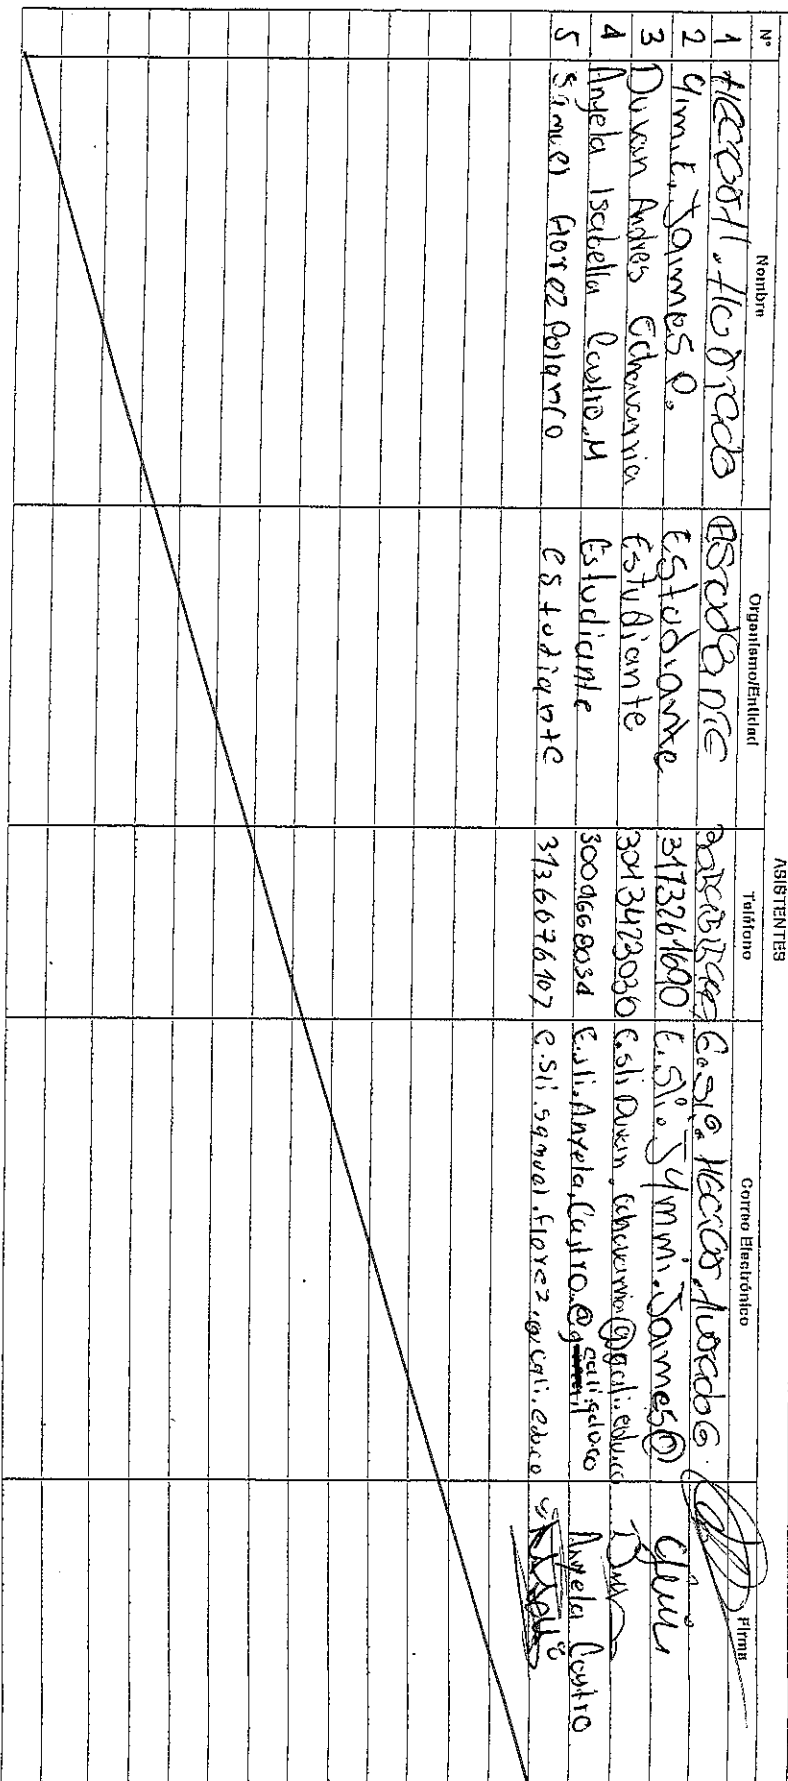 ASISTENTES
Nº Nombre Organismo/Entidad Teléfono Correo Electrónico Firma
1
2 Yimi E. Jaimes O. Estudiante 3173261690 E.Sli.Jymmi.Jaimes@
3 Duvan Andres Echavarria Estudiante 3013423030 E.sli Duvan, echavarria@cali.edu.co
4 Angela Isabella Castro.M Estudiante E.sli.Angela.Castro.@ cali.edu.co Angela Castro
5 Samuel florez Polanco estudiante 3136676107 e.sli.samuel.florez.@cali.edu.co